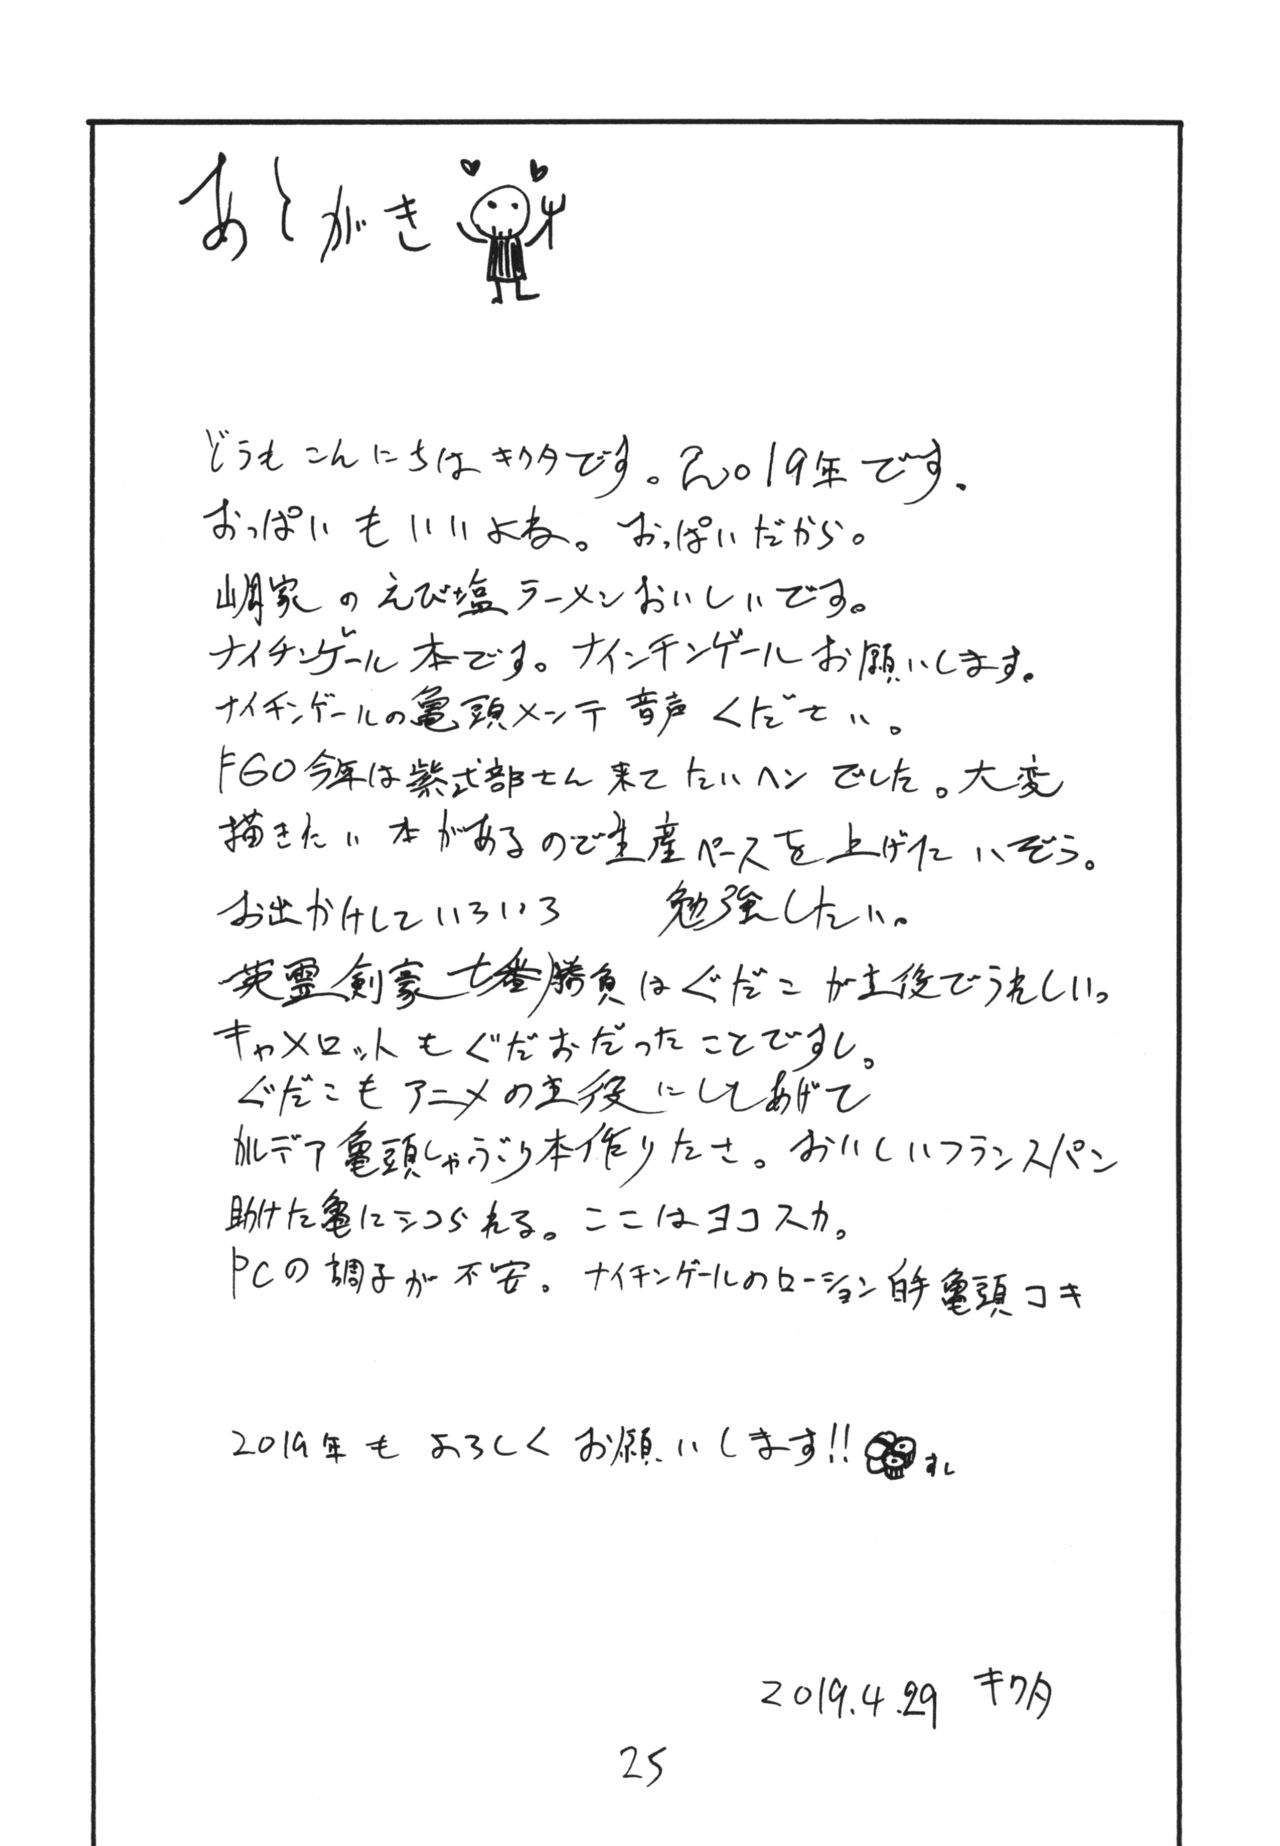 あとがき
どうもこんにちはキクタです。2019年です。
おっぱいもいいよね。おっぱいだから。
家のえび塩ラーメンおいしいです。
ナイチンゲール本です。ナインチンゲールお願いします。
ナイチンゲールの亀頭メンテ音声ください。
FGO今年は紫式部さん来てたいヘンでした。大変
描きたい本があるので生産ペースを上げたいぞう。
お出かけしていろいろ 勉強したい。
英霊剣豪七番勝負はぐだこが主役でうれしい。
キャメロットもぐだおだったことですし。
ぐだこもアニメの主役にしてあげて
カルデア亀頭しゃぶり本作りたさ。おいしいフランスパン
助けた亀にシコられる。ここはヨコスカ。
PCの調子が不安。ナイチンゲールのローション白手亀頭コキ
2019年もよろしくお願いします!!
すし
2019.4.29 キクタ
25